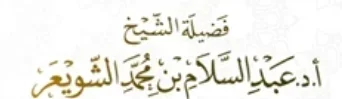 فَضِيلَة الشَّيْخ
أ.د. عَبْدِ السَّلَامِ بْنِ مُحَمَّدٍ الشُّوَيْعَرِ